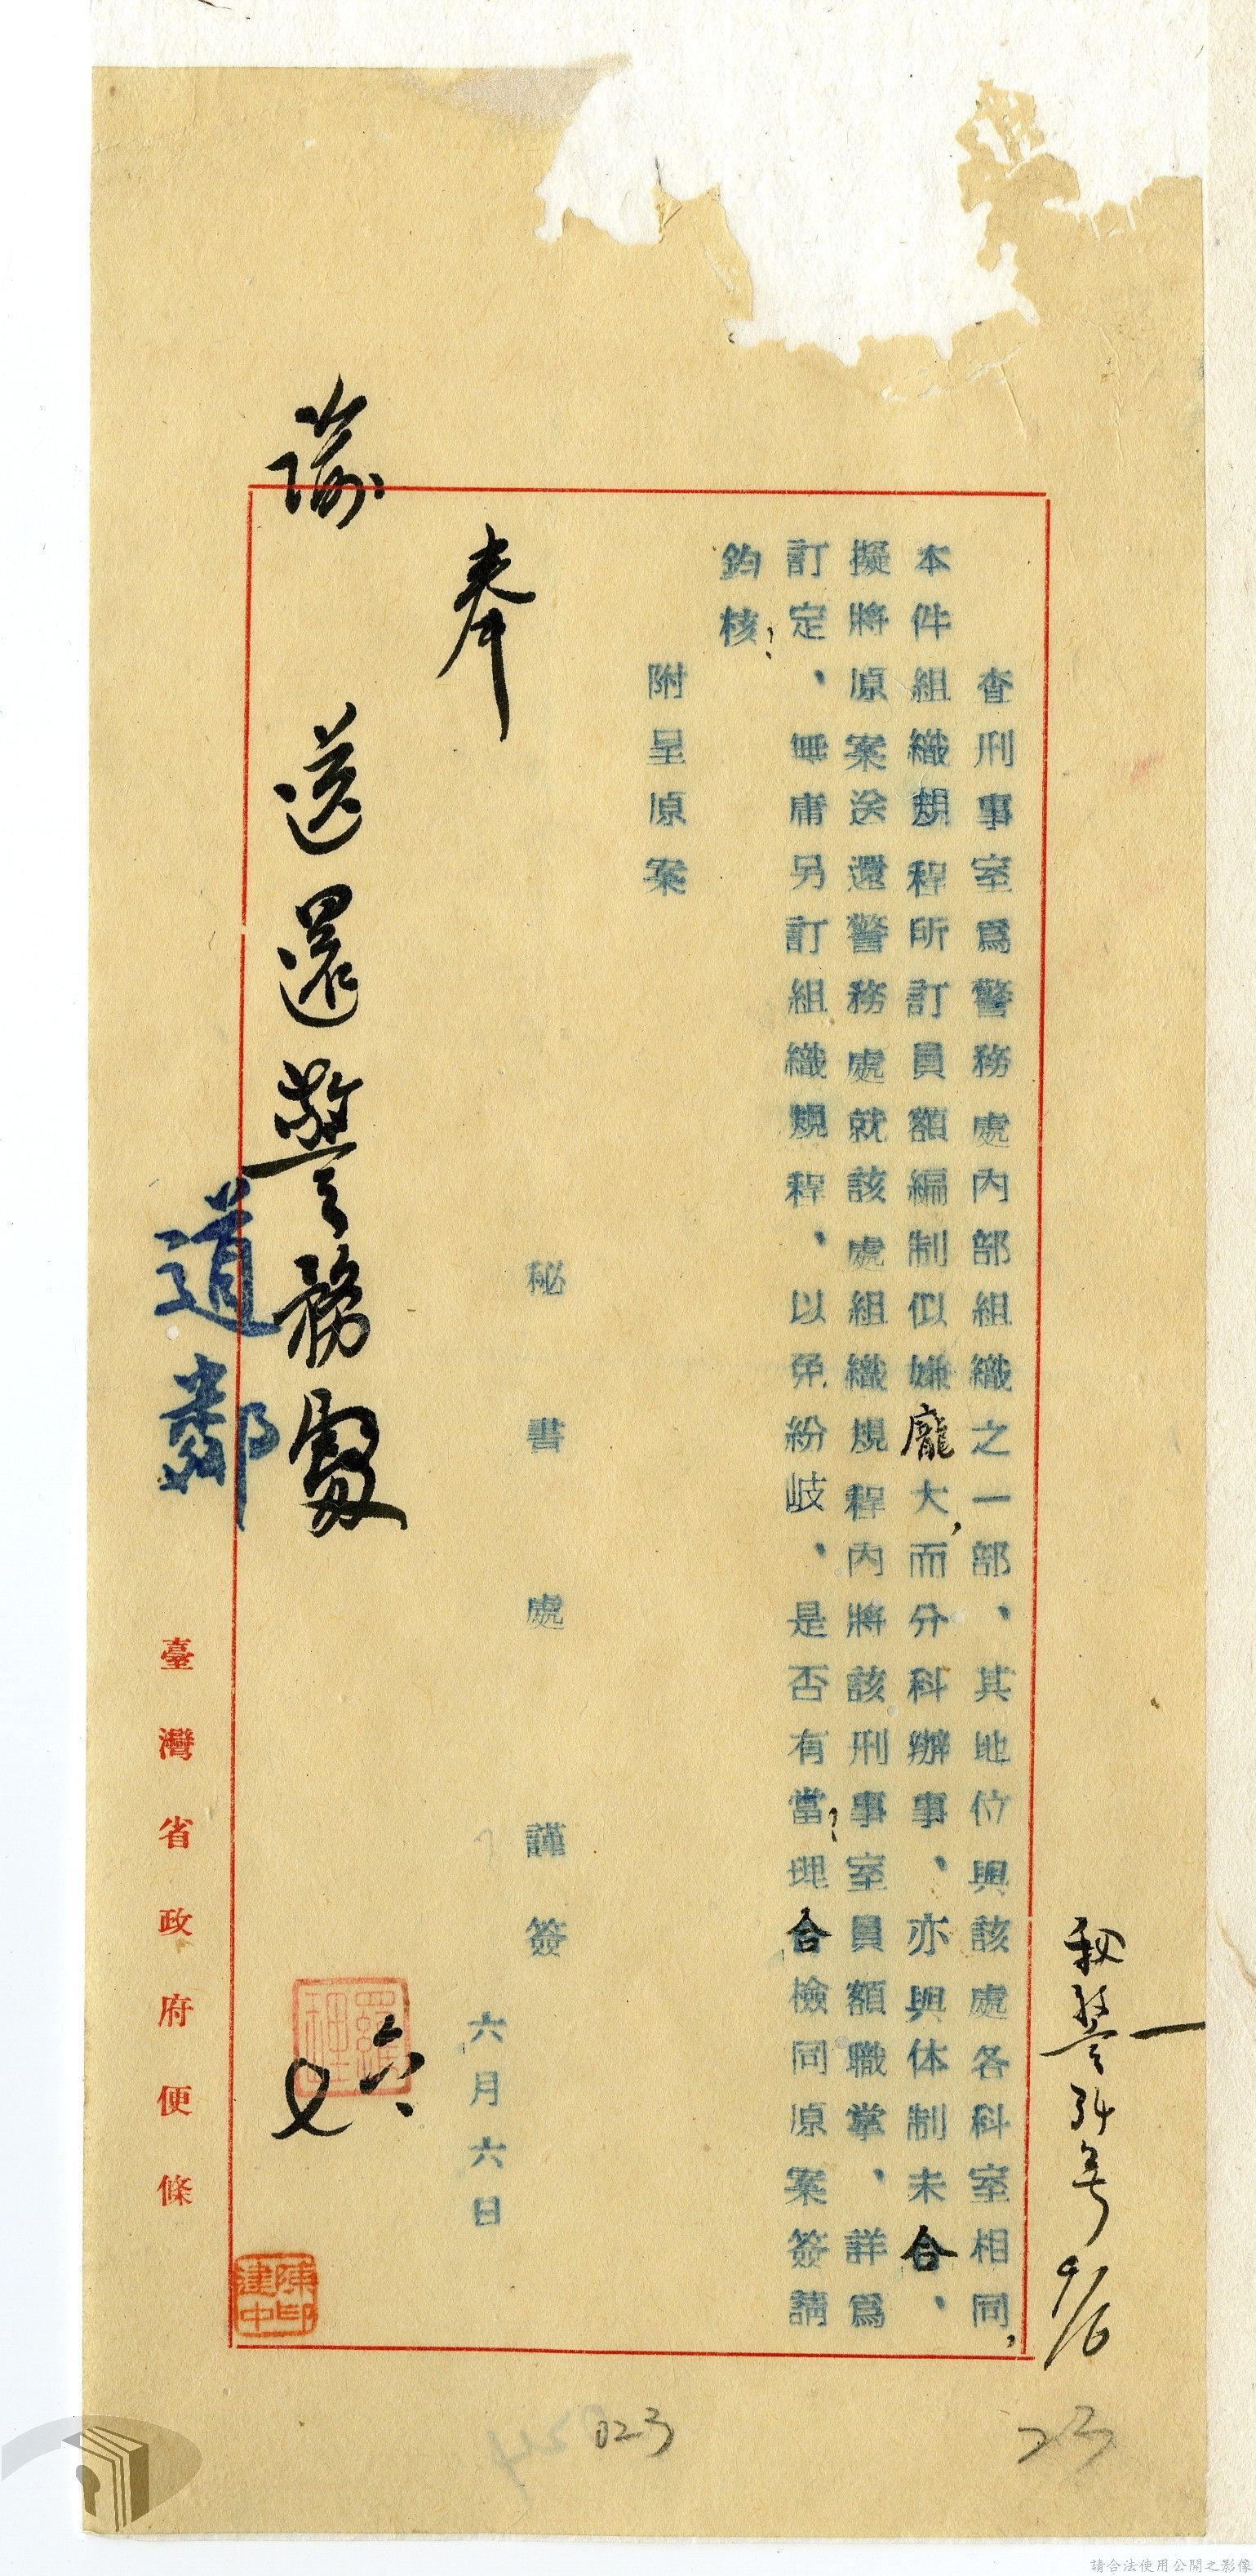 秘警34号 9/6
查刑事室爲警務處內部組織之一部、其地位與該處各科室相同，
本件組織規程所訂員額編制似嫌龐大，而分科辦事、亦與体制未合、
擬將原案送還警務處就該處組織規程內將該刑事室員額職掌、詳爲
訂定、無庸另訂組織規程、以免紛岐、是否有當？理合檢同原案簽請
鈞核？
附呈原案
秘書處 謹簽
六月六日
奉
諭 送還警務處
六
七
道鄰
陳建中印
臺灣省政府便條
023
23
請合法使用公開之影像